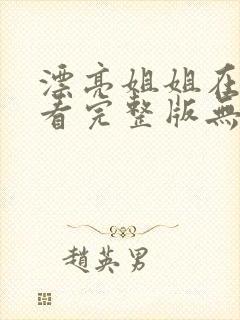 漂亮姐姐在
看完整版無
趙英男